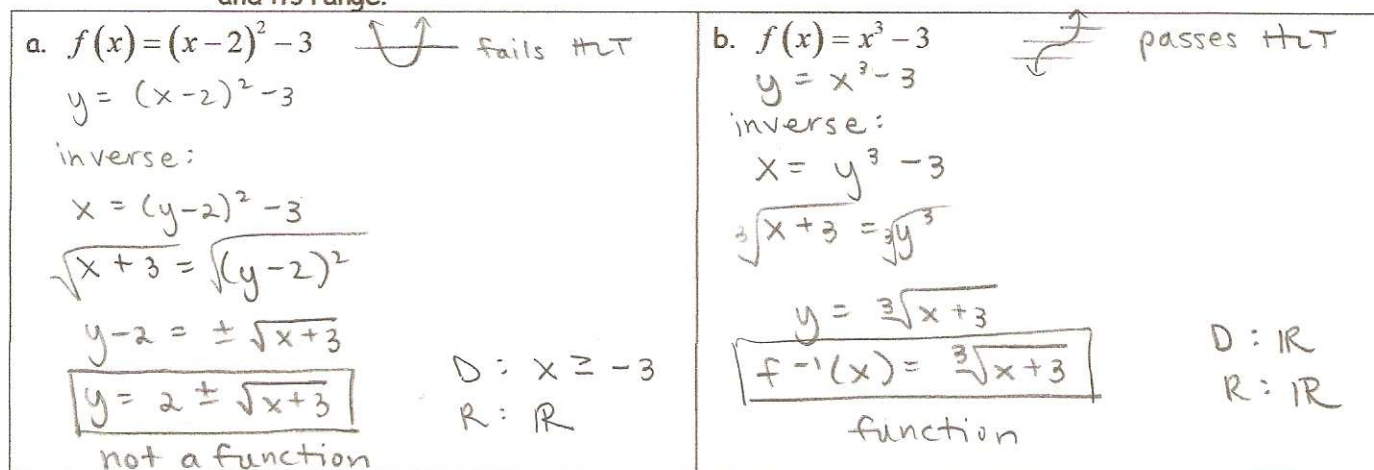 and its range.
a. f(x) = (x − 2)² − 3 fails HLT
y = (x-2)² -3
inverse:
x = (y-2)² -3
√x + 3 = √(y-2)²
y-2 = ± √x+3
y = 2 ± √x+3
D : x ≥ -3
R : ℝ
not a function
b. f(x) = x³ − 3 passes HLT
y = x³ - 3
inverse:
x = y³ -3
³√x + 3 = ³√y³
y = ³√x +3
f⁻¹(x) = ³√x+3
D : ℝ
R : ℝ
function